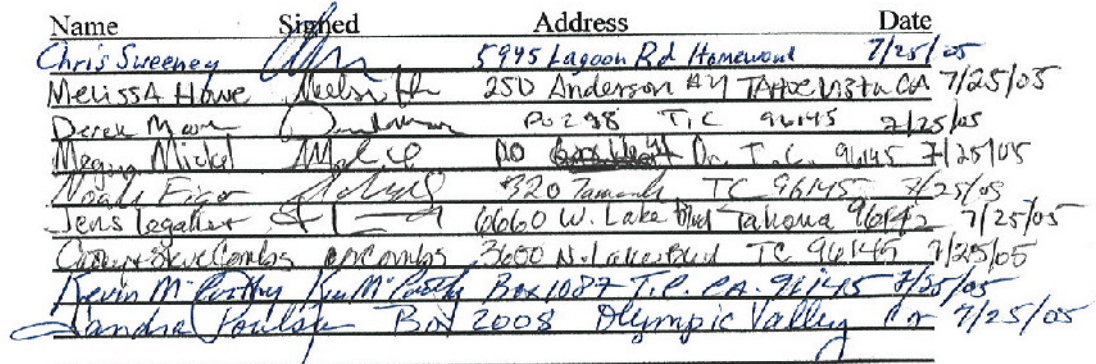 Name Signed Address Date
Chris Sweeney 5945 Lagoon Rd Homewood 7/25/05
Melissa Howe 250 Anderson #4 Tahoe Vista CA 7/25/05
Derek PO 298 T.C 96145 7/25/05
Megan Mickel PO Dr. T.C. 96145 7/25/05
Noah 320 TC 96145 7/25/05
Jens Legallet 6660 W. Lake Blvd Tahoma 96142 7/25/05
Steve Combs 3600 N. Lake Blvd TC 96145 7/25/05
Kevin McCarthy Kevin McCarthy Box 1087 T.C. CA. 96145 7/25/05
Sandra Poulsen Box 2008 Olympic Valley Ca 7/25/05